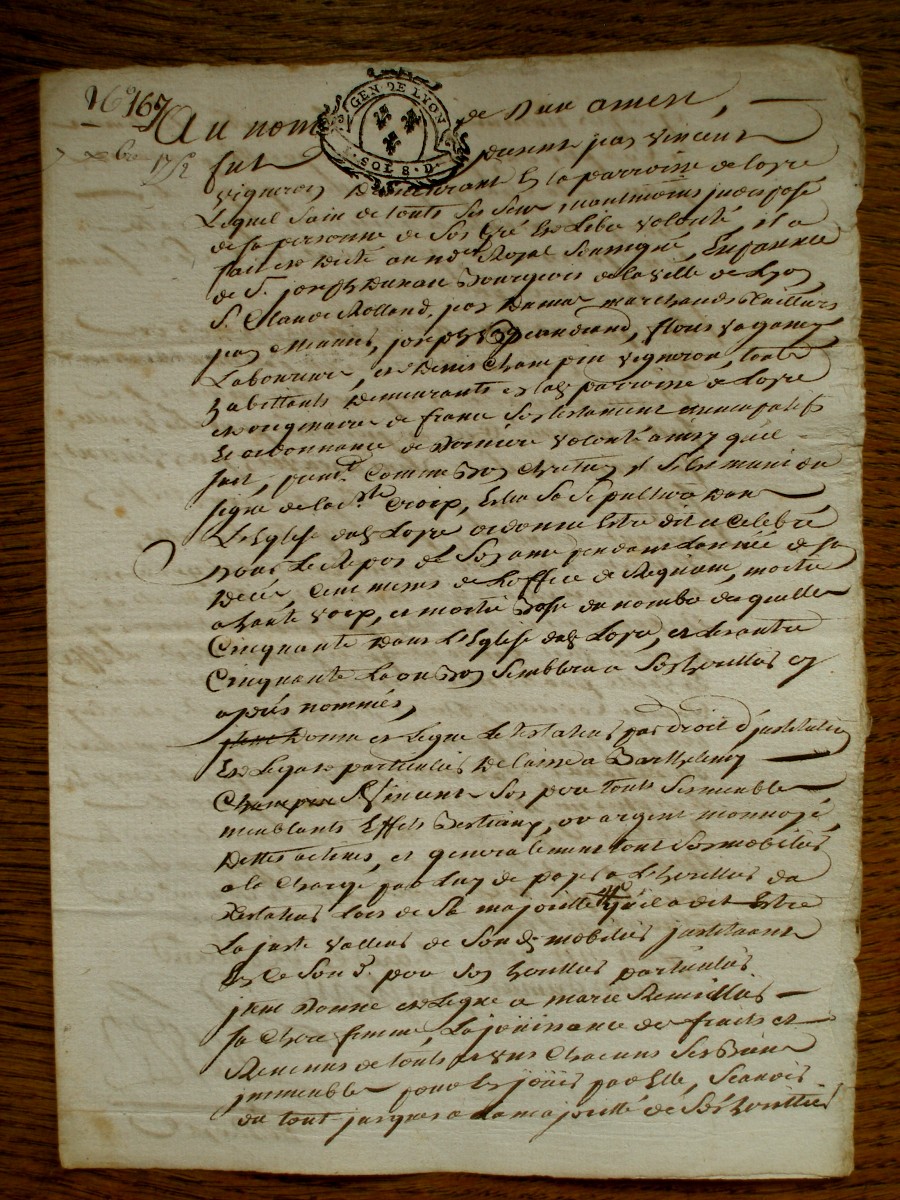 16e 167
Au nom de Dieu amen,
GEN DE LYON
SOLS D
7 xbre 1712
fut present jean Vincent
vigneron demeurant en la parroisse de Loyre
Lequel sain de touts ses sens neantmoins indisposé
de sa personne de son gré et libre volonté, il a
fait et dicté au nore Royal soussigné, En pance
de Sr joseph Bourgeois de la ville de Lyon
Sr Claude Rolland, jean marchands tailleurs
jean joseph flouis
Laboureurs, et Denis Champin vigneron, touts
habittants demeurants en lad parroisse de Loyre
de france son testament nuncupatif
et ordonnance de derniere volonté ainsy qu'il
suit, premt comme bon chretien il s'est muni du
signe de la ste Croix, Eslu sa sepulture dans
L'Eglise dud Loyre ordonne Estre dit et celebré
pour Le Repos de son ame pendant L'année de son
decés, Cent messes de L'office de Requiem, moitié
a haute voix, et moitié basse du nombre desquelles
Cinquante dans L'Eglise dud Loyre, et Les autres
Cinquante La ou bon semblera a ses heritiers cy
aprés nommés,
item donne et Legue Le testateur par droit d'institution
et Legat particulier delaisse a Barthelemy
Vincent son touts ses meubles
meublants Effets bestiaux, or argent monnoyé
dettes actives, et generalement tout son mobilier
a la charge par Luy de payer a L'heritier du
testateur lors de sa majorité qu'il a dit Estre
La juste valleur de sond mobilier jnstituant
en ce sond. pour son heritier particulier
jtem donne et Legue a marie
sa chere femme, La joüissance des fruits et
Revenus de touts et uns chacuns ses biens
jmmeubles pour en joüir par Elle,
du tout jusques a La majorité de ses heritiers